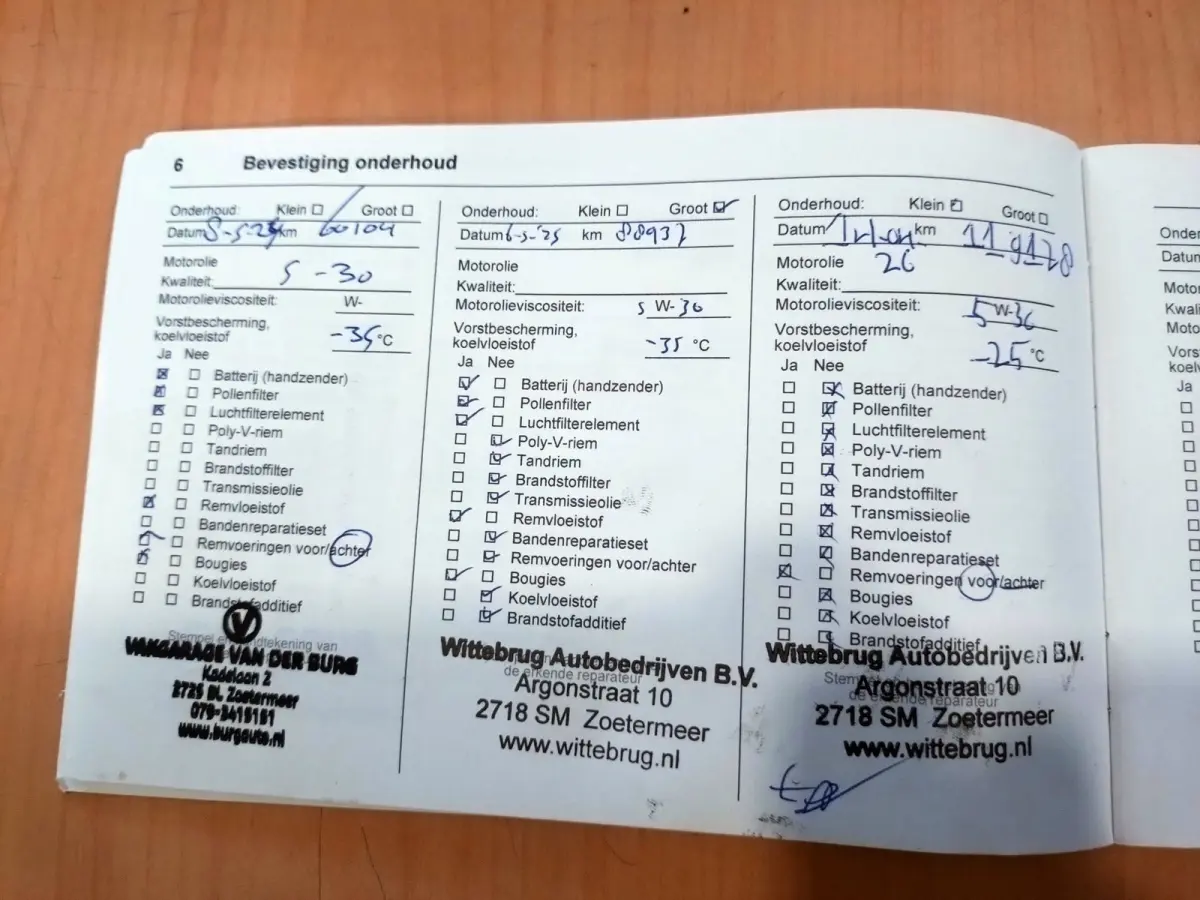 6 Bevestiging onderhoud
Onderhoud: Klein Groot
Datum km 60104
Motorolie 5-30
Kwaliteit:
Motorolieviscositeit: W-
Vorstbescherming,
koelvloeistof -35 °C
Ja Nee
Batterij (handzender)
Pollenfilter
Luchtfilterelement
Poly-V-riem
Tandriem
Brandstoffilter
Transmissieolie
Remvloeistof
Bandenreparatieset
Remvoeringen voor/achter
Bougies
Koelvloeistof
Brandstofadditief
Stempel en handtekening van
VAKGARAGE VAN DER BURG
Kadelaan 2
2725 BL Zoetermeer
079-3415151
www.burgauto.nl
Onderhoud: Klein Groot
Datum 6-5-'25 km 88937
Motorolie
Kwaliteit:
Motorolieviscositeit: 5 W-30
Vorstbescherming,
koelvloeistof -35 °C
Ja Nee
Batterij (handzender)
Pollenfilter
Luchtfilterelement
Poly-V-riem
Tandriem
Brandstoffilter
Transmissieolie
Remvloeistof
Bandenreparatieset
Remvoeringen voor/achter
Bougies
Koelvloeistof
Brandstofadditief
Wittebrug Autobedrijven B.V.
de erkende reparateur
Argonstraat 10
2718 SM Zoetermeer
www.wittebrug.nl
Onderhoud: Klein Groot
Datum km
Motorolie 26
Kwaliteit:
Motorolieviscositeit: 5 W-30
Vorstbescherming,
koelvloeistof -25 °C
Ja Nee
Batterij (handzender)
Pollenfilter
Luchtfilterelement
Poly-V-riem
Tandriem
Brandstoffilter
Transmissieolie
Remvloeistof
Bandenreparatieset
Remvoeringen voor/achter
Bougies
Koelvloeistof
Brandstofadditief
Wittebrug Autobedrijven B.V.
Stempel en handtekening van
Argonstraat 10
de erkende reparateur
2718 SM Zoetermeer
www.wittebrug.nl